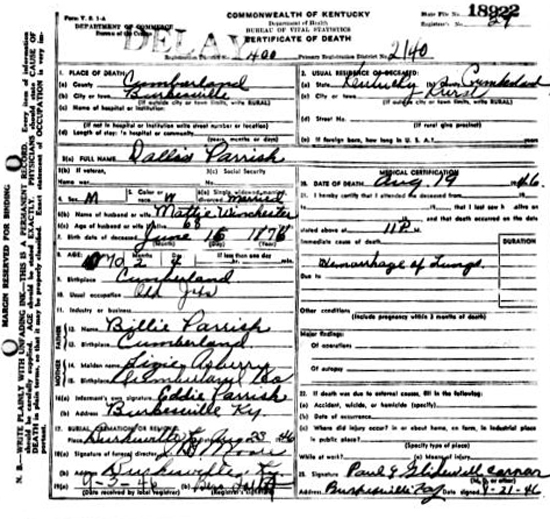 Form V. S. 1-A
DEPARTMENT OF COMMERCE
Bureau of the Census
COMMONWEALTH OF KENTUCKY
Department of Health
BUREAU OF VITAL STATISTICS
CERTIFICATE OF DEATH
State File No. 18922
Registrar's No. 29
DELAY
Registration District No. 400 Primary Registration District No. 2140
MARGIN RESERVED FOR BINDING
N. B.—WRITE PLAINLY WITH UNFADING INK—THIS IS A PERMANENT RECORD. Every item of information should be carefully supplied. AGE should be stated EXACTLY. PHYSICIANS should state CAUSE OF DEATH in plain terms, so that it may be properly classified. Exact statement of OCCUPATION is very important.
1. PLACE OF DEATH:
(a) County Cumberland
(b) City or town Burkesville
(If outside city or town limits, write RURAL)
(c) Name of hospital or institution:
(If not in hospital or institution write street number or location)
(d) Length of stay: In hospital or community
(years, months or days)
2. USUAL RESIDENCE OF DECEASED:
(a) State Kentucky (b) County Cumberland
(c) City or town Rural
(If outside city or town limits, write RURAL)
(d) Street No.
(If rural give precinct)
(e) If foreign born, how long in U. S. A.? years
3(a) FULL NAME Dallis Parrish
3(b) If veteran, 3(c) Social Security
Name war No.
4. Sex M 5. Color or race W 6(a) Single, widowed, married, divorced married
6(b) Name of husband or wife Mattie Winchester
6(c) Age of husband or wife if alive 68
7. Birth date of deceased June 15 1876
(Month) (Day) (Year)
8. AGE: 70 2 4 If less than one day
hr. min.
9. Birthplace Cumberland
10. Usual occupation
11. Industry or business
FATHER
12. Name Billie Parrish
13. Birthplace Cumberland
MOTHER
14. Maiden name Asberry
15. Birthplace Cumberland Co
16(a) Informant's own signature Eddie Parrish
(b) Address Burkesville Ky.
17. BURIAL, CREMATION OR REMOVAL
Place Burkesville Ky Aug 23 46
18(a) Signature of funeral director
(b) Address Burkesville, Ky.
19(a) 9-3-46
(Date received by local registrar) (Registrar's signature)
MEDICAL CERTIFICATION
20. DATE OF DEATH Aug 19 1946
21. I hereby certify that I attended the deceased from
, 19 , to , 19 , that I last saw h alive on
, 19 , and that death occurred on the date
stated above at 11 P M
Immediate cause of death DURATION
Hemorrhage of Lungs.
Due to
Other conditions
(Include pregnancy within 3 months of death)
Major findings:
Of operations
Of autopsy
22. If death was due to external causes, fill in the following:
(a) Accident, suicide, or homicide (specify)
(b) Date of occurrence
(c) Where did injury occur? in or about home, on farm, in industrial place, in public place?
(Specify type of place)
While at work? (e) Means of injury
23. Signature Paul E Glidewell coroner
(M. D. or other)
Address Burkesville Ky Date signed 9-21-46